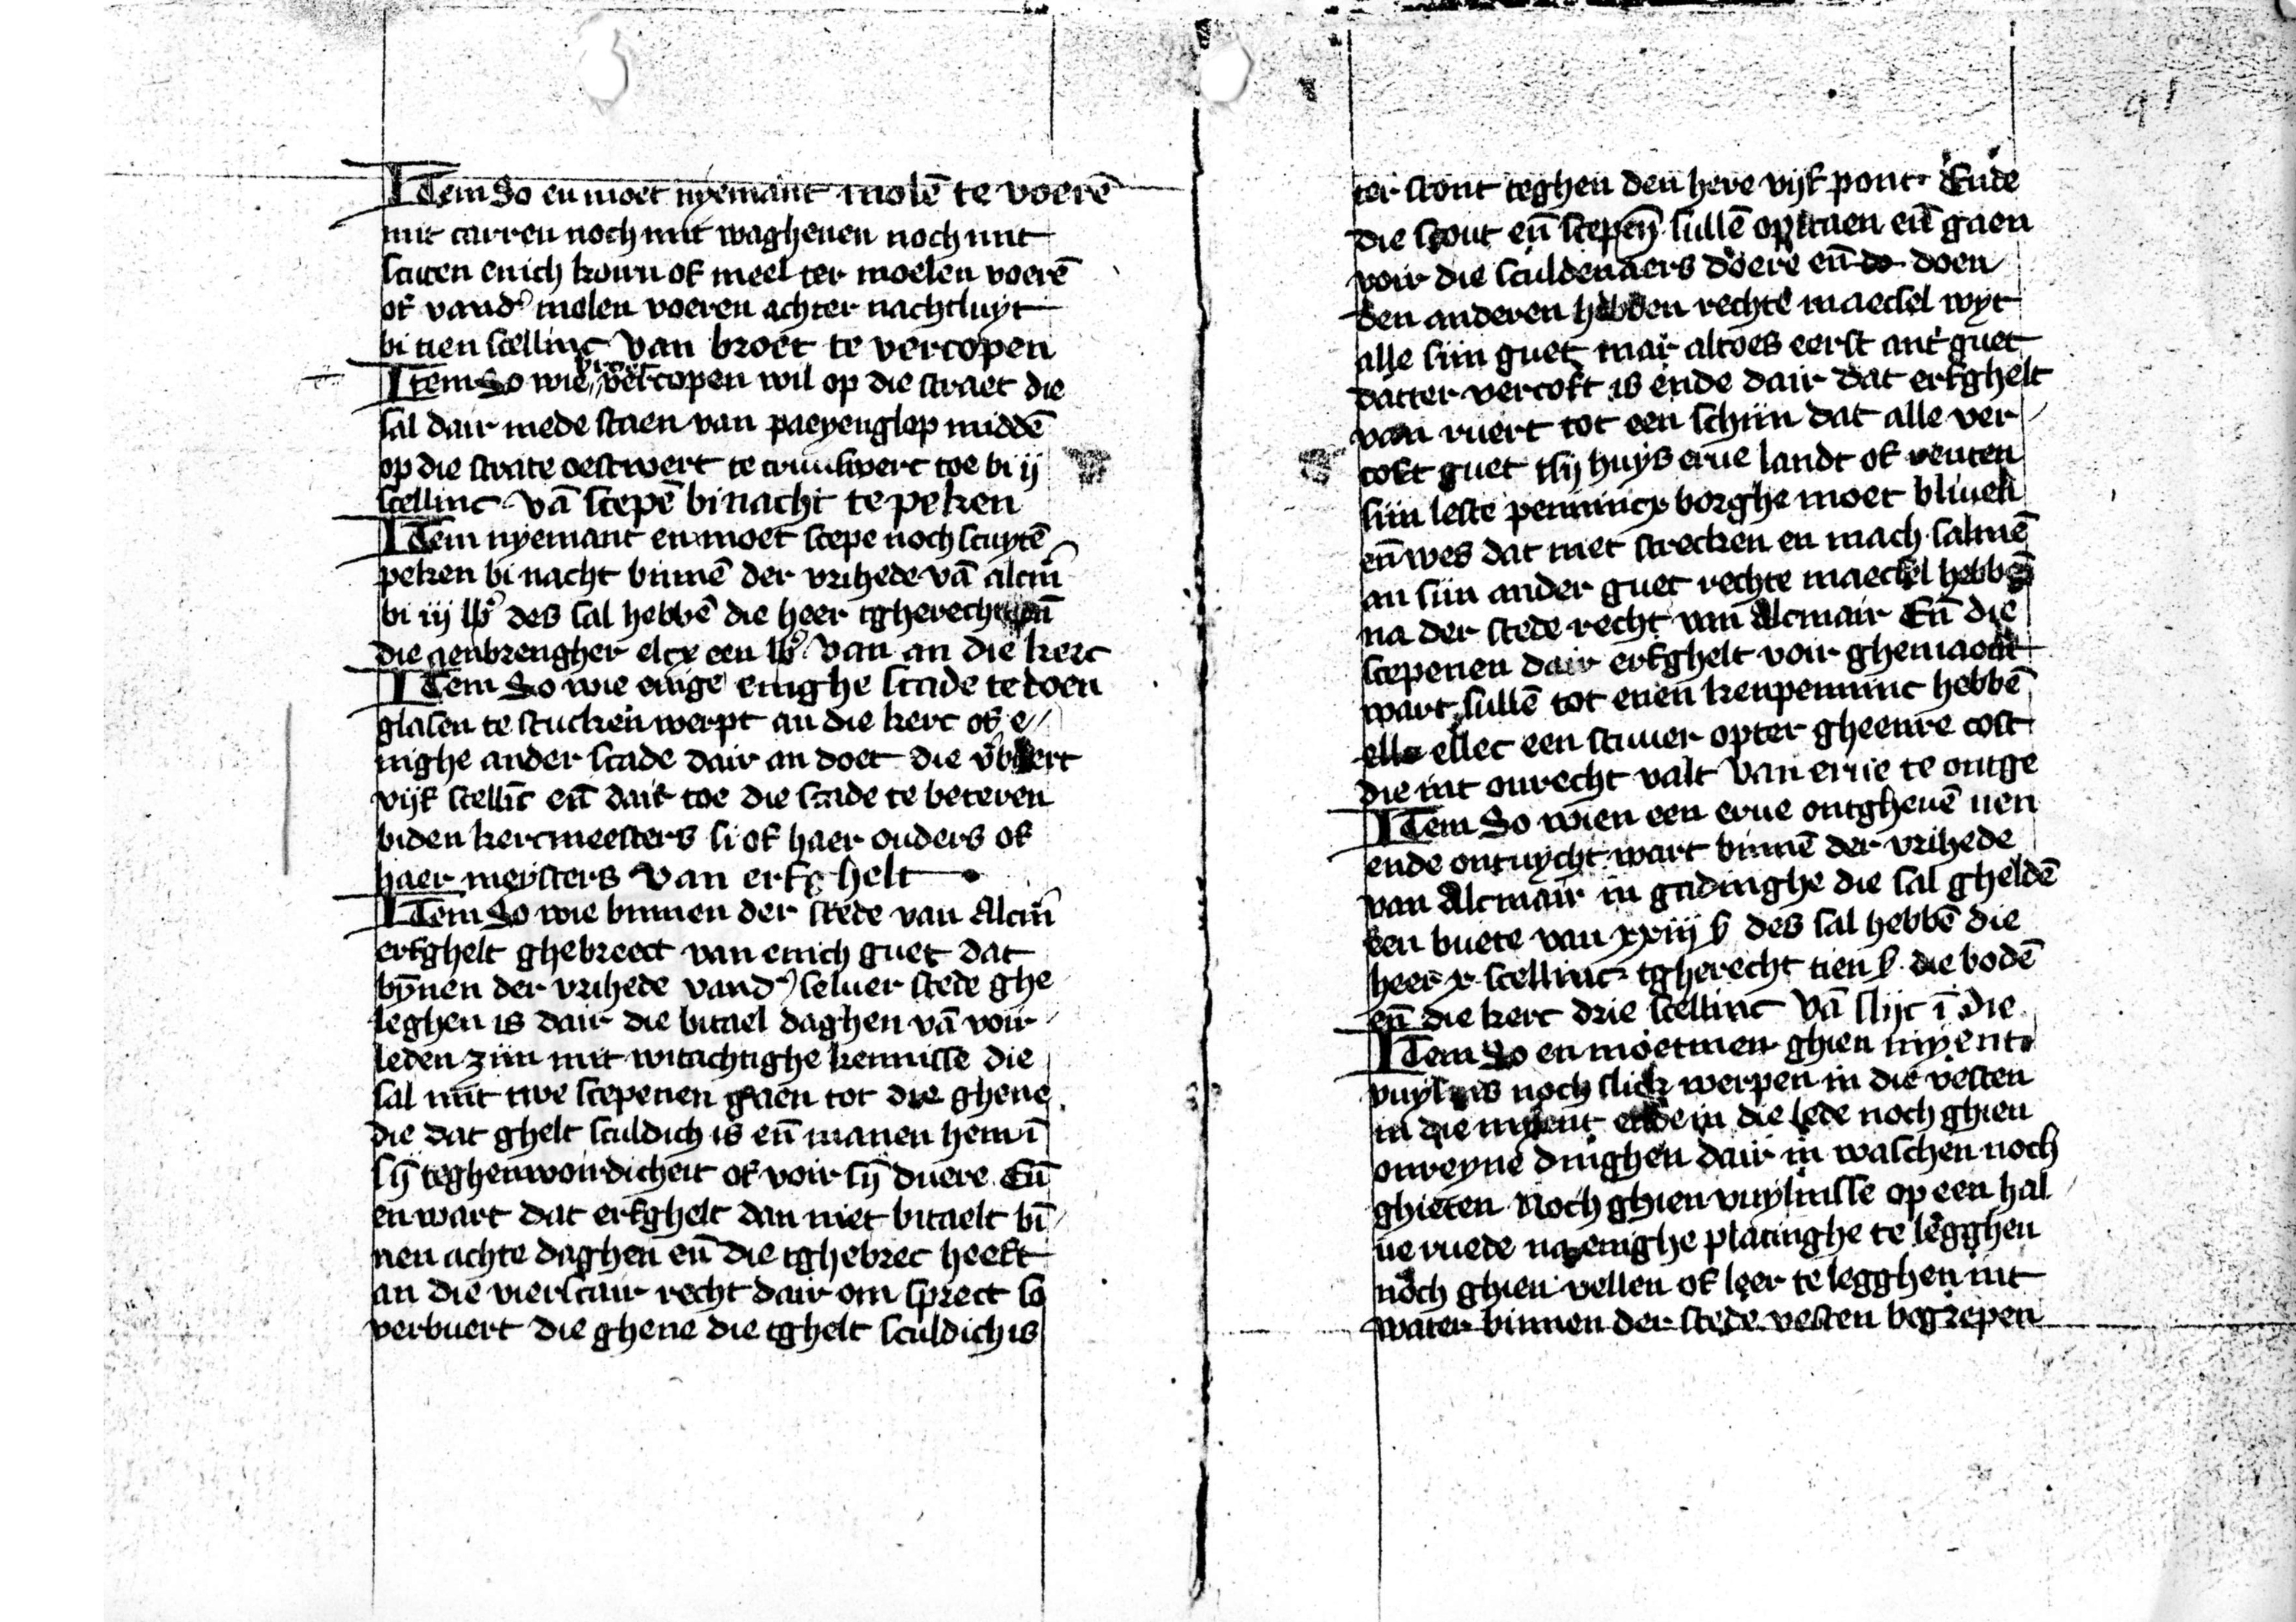 Item So en moet nyemant molē te voerē
mit carren noch mit waghenen noch mit
scuten enich korn of meel ter moelen voerē
of vand' molen voeren achter nachtluyt
bi tien scellinc van broet te vercopen
Item So wie broet vercopen wil op die straet die
sal dair mede staen van paeyenglop middē
op die strate oestwert te cruuswert toe bi ij
scellinc vā scepē bi nacht te peken
Item nyemant en moet scepe noch scuytē
peken bi nacht binnē der vrihede vā alcm̄
bi iij lb' des sal hebbē die heer tgherecht eñ
die aenbrengher elcx een lb' van an die kerc
Item So wie enighe scade te doen
glasen te stucken werpt an die kerc of e
nighe ander scade dair an doet die v'buert
vijf scellīc eñ dair toe die scade te beteren
biden kercmeesters si of haer ouders of
haer meysters van erfghelt
Item So wie binnen der stede van Alcm̄
erfghelt ghebreect van enich guet dat
bȳnen der vrihede vand' seluer stede ghe
leghen is dair die bitael daghen vā voir
leden ziin mit witachtighe kennisse die
sal mit twe scepenen gaen tot die ghene
die dat ghelt sculdich is eñ manen hem ī
sȳ teghenwoirdicheit of voir sȳ duere Eñ
en wart dat erfghelt dan niet bitaelt bī
nen achte daghen eñ die tghebrec heeft
an die vierscair recht dair om sprect so
verbuert die ghene die tghelt sculdich is
ter stont teghen den here vijf pont Ende
die scout eñ scepenē sullē opstaen eñ gaen
voir die sculdenaers doere eñ do doen
den anderen hebben rechte maecsel wyt
alle siin guet mar altoes eerst ant guet
datter vercoft is ende dair dat erfghelt
van ruert tot een schiin dat alle ver
coft guet tsij huys erue landt of renten
siin leste penninx borghe moet bliuen
eñ wes dat niet strecken en mach salmē
an siin ander guet rechte maecsel hebbē
na der stede recht van Alcmair Eñ die
scepenen dair erfghelt voir ghemaent
wart sullē tot enen kenpenninc hebbē
elle ellec een stuuer opter gheenre cost
die int onrecht valt van erue te ontge
Item So wien een erue ontgheuē uen
ende ontuycht wart binnē der vrihede
van Alcmair in gadinghe die sal gheldē
een buete van xxiij s des sal hebbē die
heer x scellinc tgherecht tien s die bodē
eñ die kerc drie scellinc Vā slijc ī die
Item So en moetmen ghien myent
vuylnis noch slick werpen in die vesten
in die myent ende in die lede noch ghien
onreyne dinghen dair in walschen noch
ghieten Noch ghien vuylnisse op een hal
ue ruede na enighe platinghe te legghen
noch ghien vellen of leer te legghen int
water binnen der stede vesten begrepen